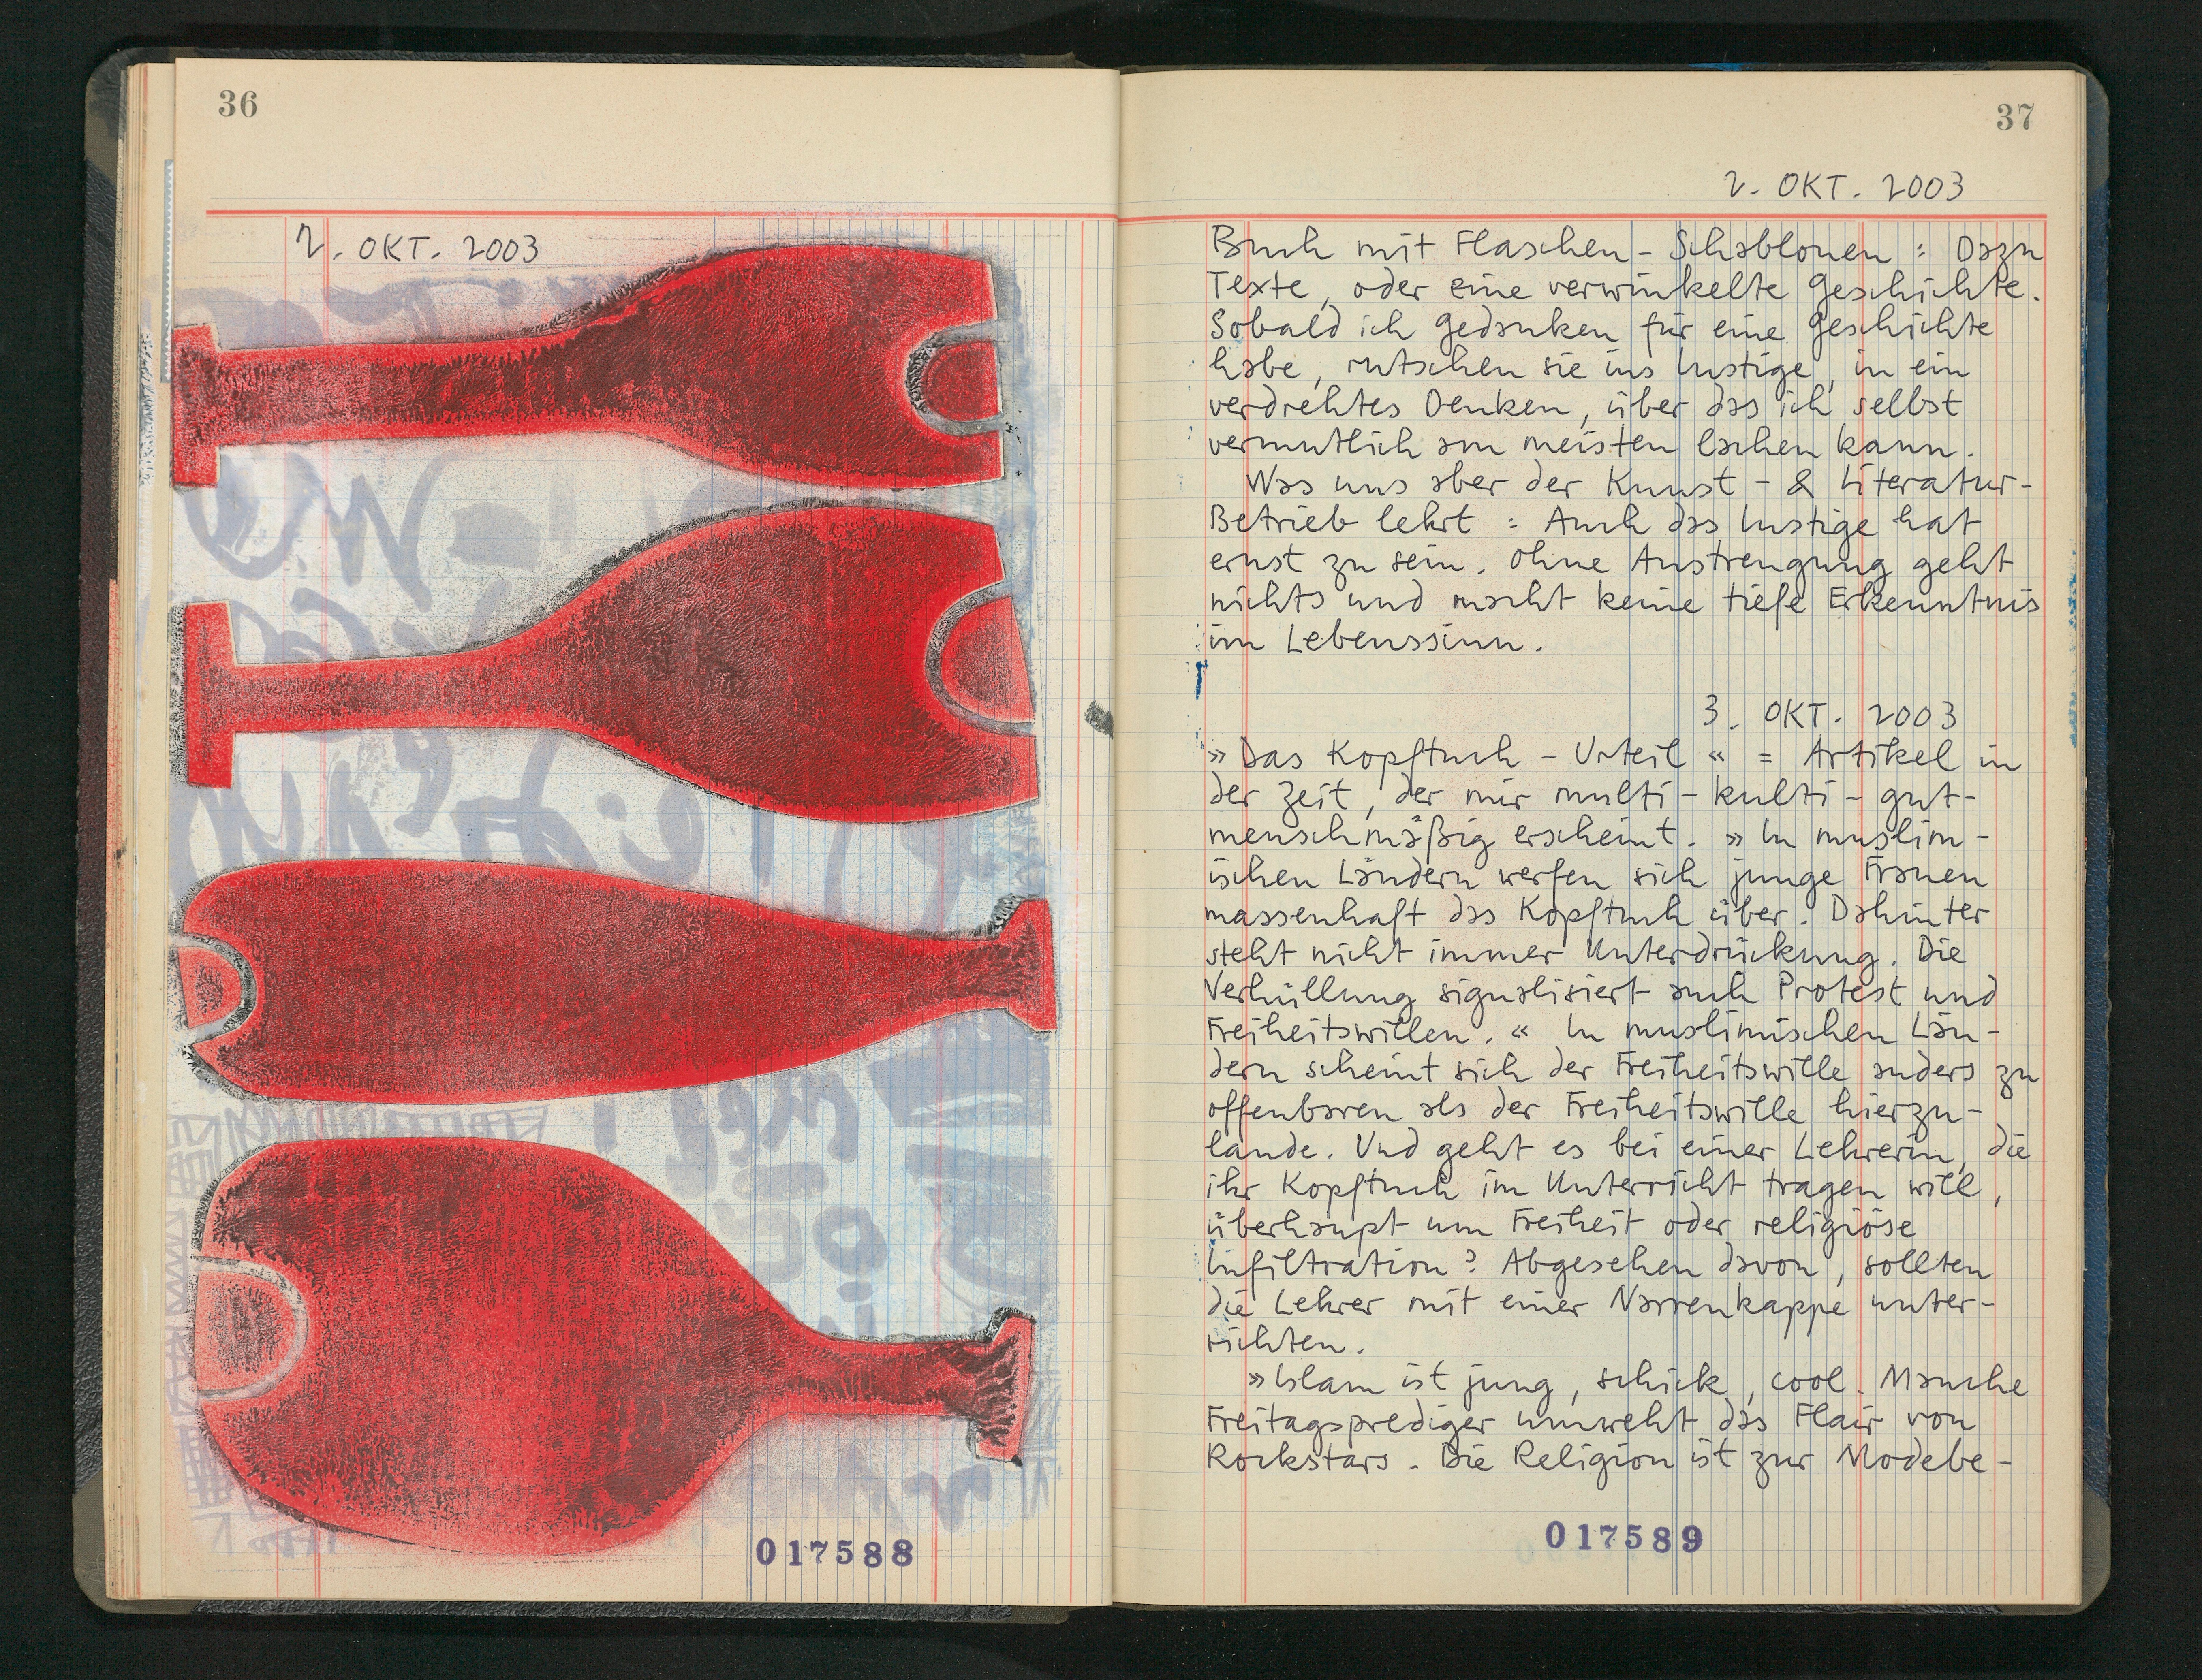 36
2. OKT. 2003
017588
37
2. OKT. 2003
Buch mit Flaschen-Schablonen: Dazu
Texte, oder eine verwinkelte Geschichte.
Sobald ich Gedanken für eine Geschichte
habe, rutschen sie ins Lustige, in ein
verdrehtes Denken, über das ich selbst
vermutlich am meisten lachen kann.
Was uns aber der Kunst- & Literatur-
Betrieb lehrt: Auch das Lustige hat
ernst zu sein. Ohne Anstrengung geht
nichts und macht keine tiefe Erkenntnis
im Lebenssinn.
3. OKT. 2003
»Das Kopftuch-Urteil« = Artikel in
der Zeit, der mir multi-kulti-gut-
menschmäßig erscheint. »In muslim-
ischen Ländern werfen sich junge Frauen
massenhaft das Kopftuch über. Dahinter
steht nicht immer Unterdrückung. Die
Verhüllung signalisiert auch Protest und
Freiheitswillen.« In muslimischen Län-
dern scheint sich der Freiheitswille anders zu
offenbaren als der Freiheitswille hierzu-
lande. Und geht es bei einer Lehrerin, die
ihr Kopftuch im Unterricht tragen will,
überhaupt um Freiheit oder religiöse
Infiltration? Abgesehen davon, sollten
die Lehrer mit einer Narrenkappe unter-
richten.
»Islam ist jung, schick, cool. Manche
Freitagsprediger umweht das Flair von
Rockstars. Die Religion ist zur Modebe-
017589